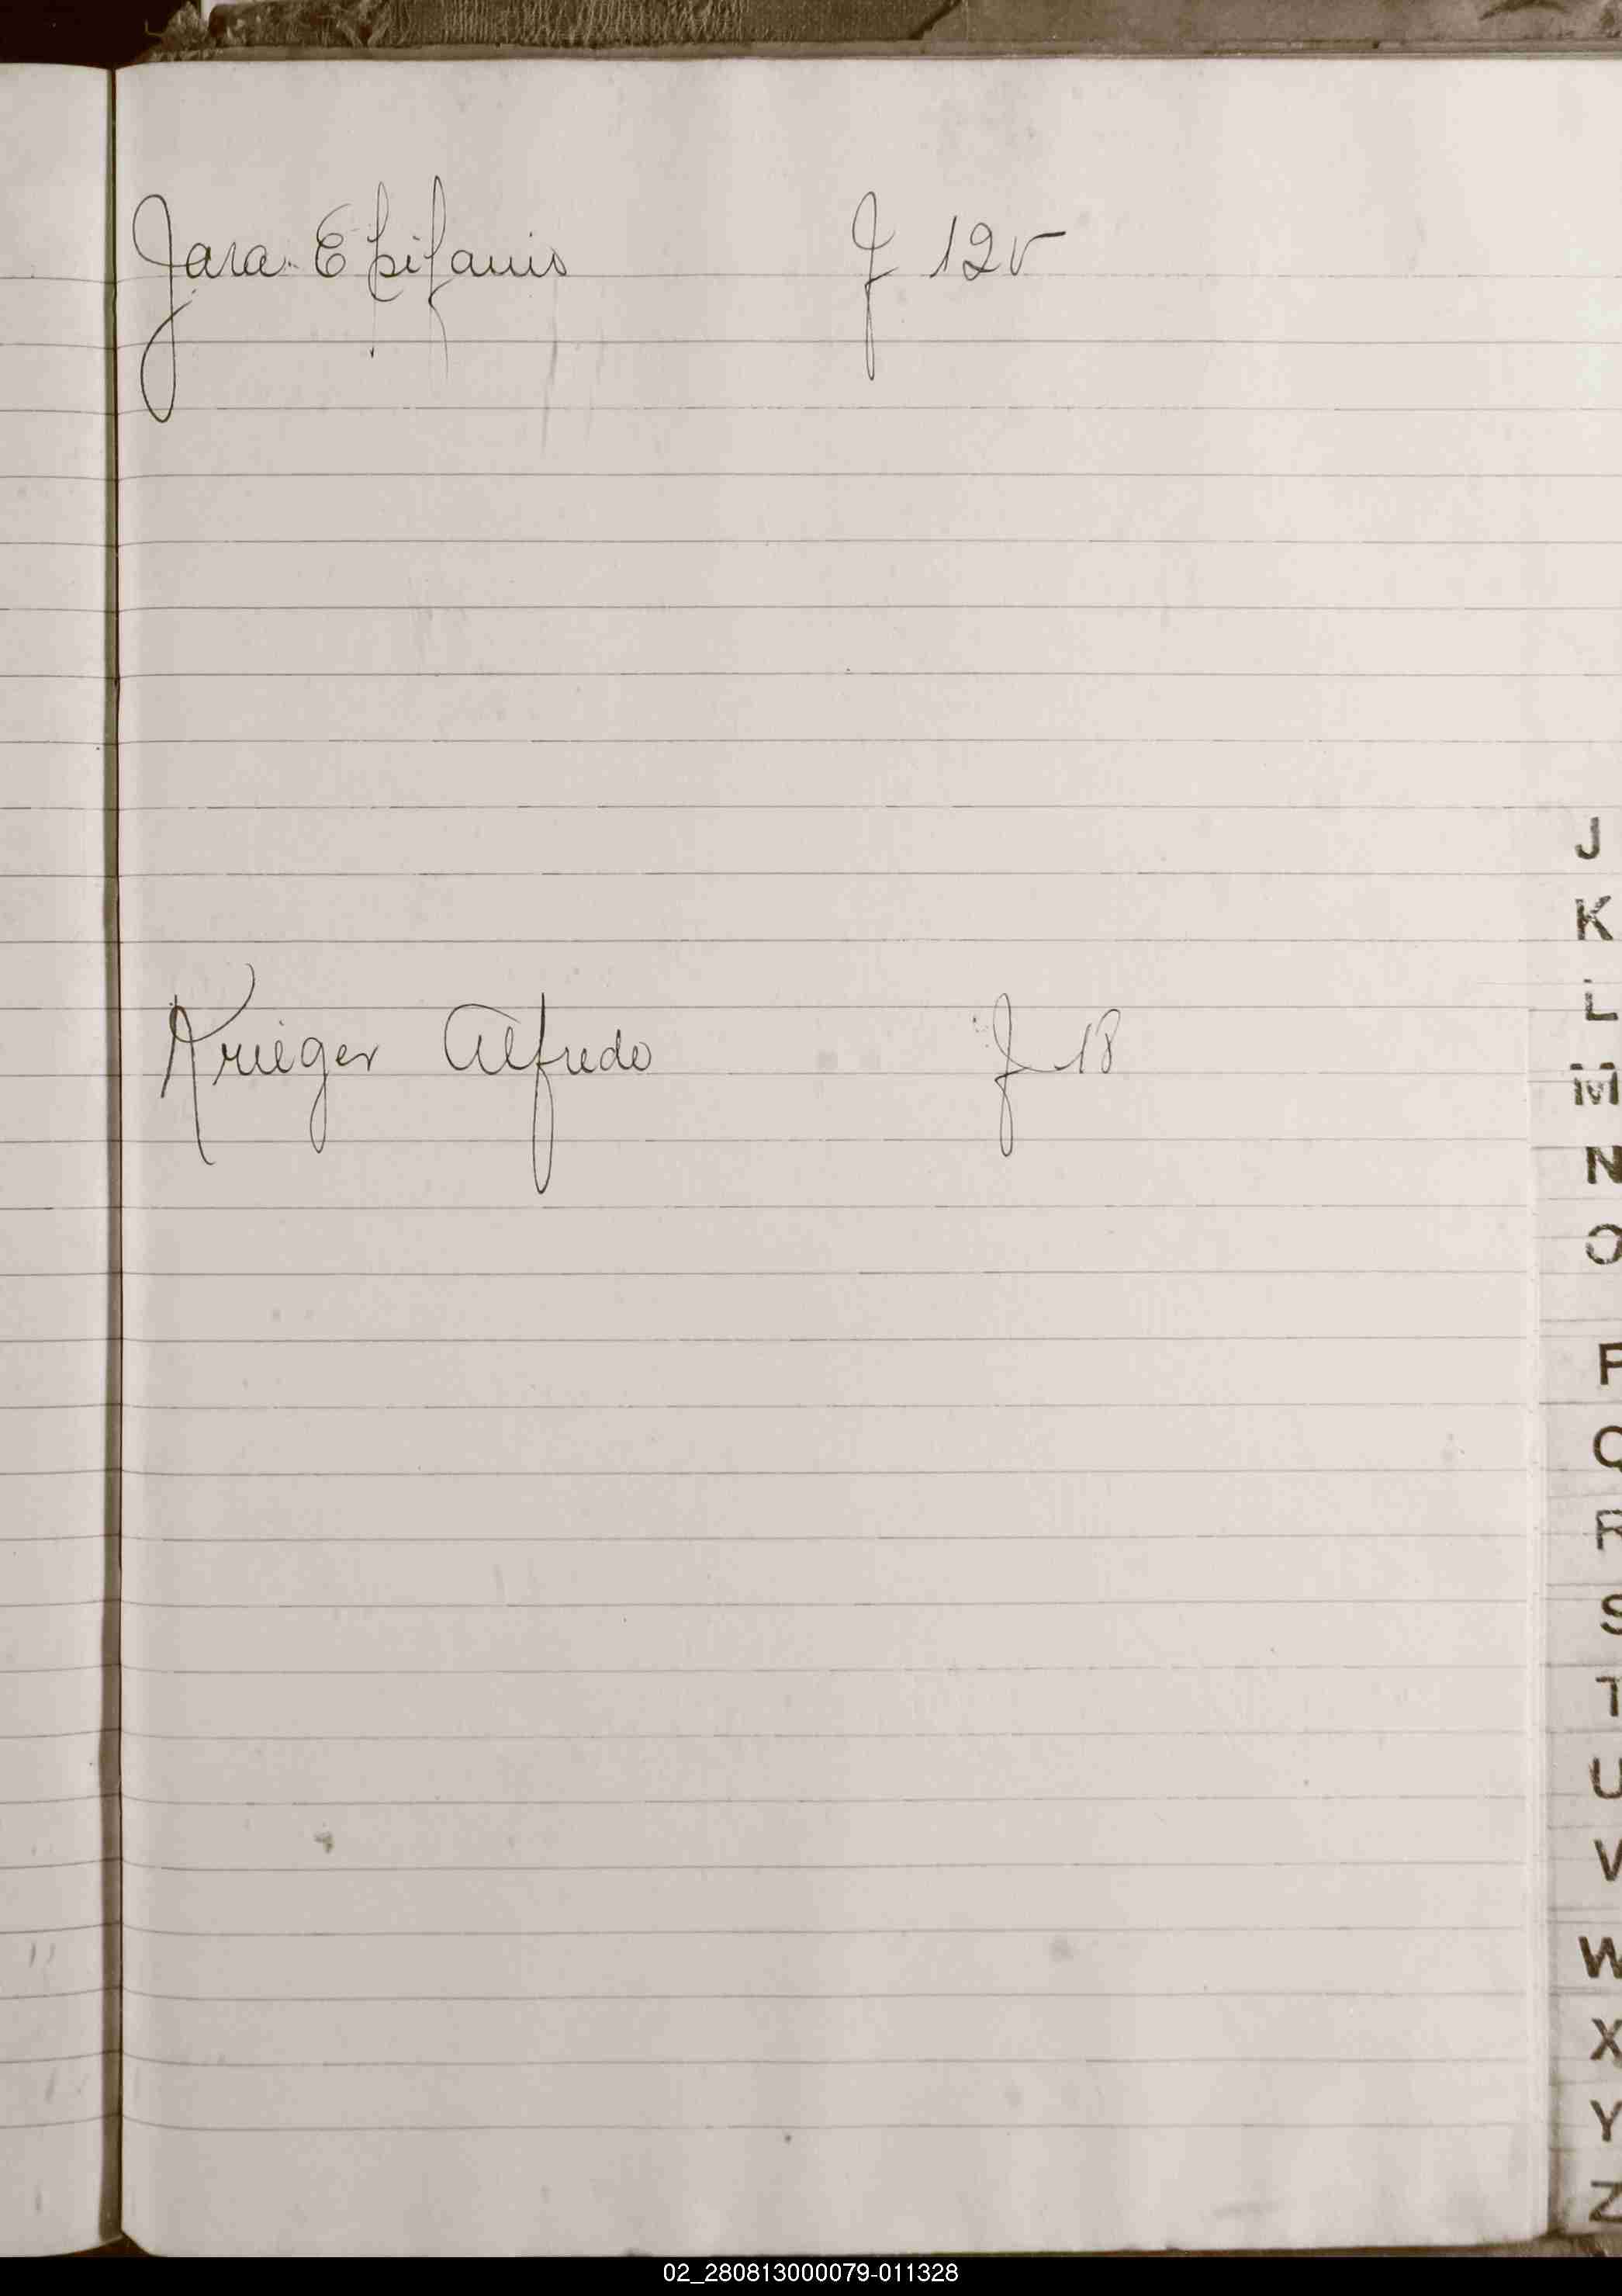 Jara Epifanio f 12v
Krieger Alfredo f 18
J
K
L
M
N
O
P
Q
R
S
T
U
V
W
X
Y
Z
02_280813000079-011328